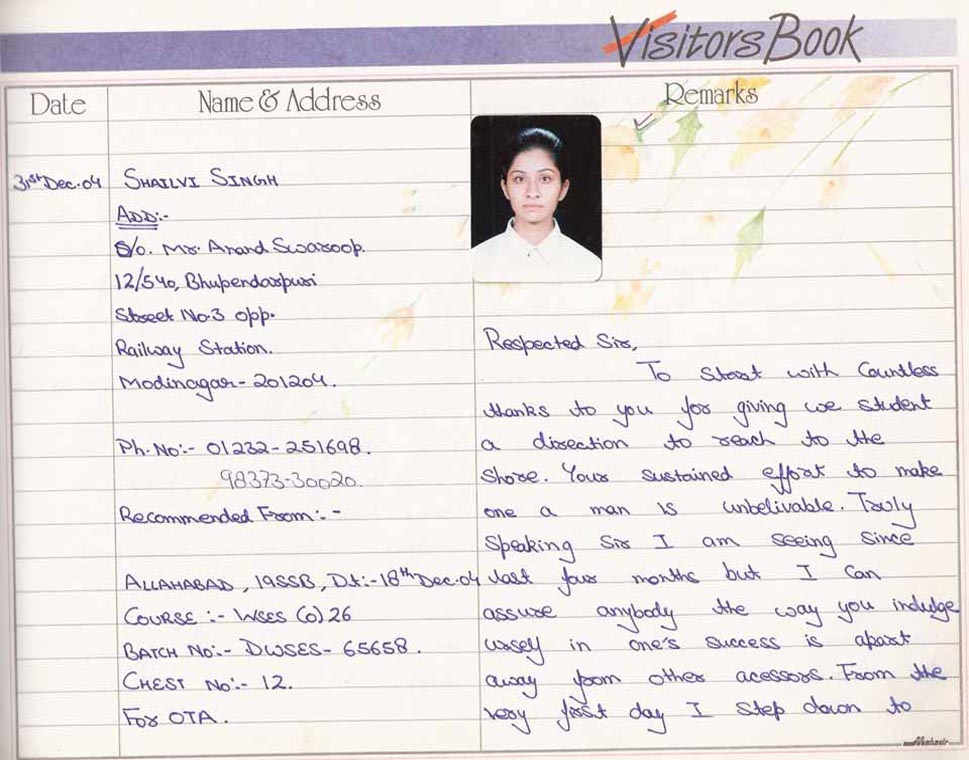 Visitors Book
Date
Name & Address
Remarks
31st Dec. 04
SHAILVI SINGH
ADD:-
Mr. Anand Swaroop.
12/540, Bhupendarpuri
Street No.3 opp.
Railway Station.
Modinagar- 201204.
Ph. No:- 01232-251698.
98373-30020.
Recommended From:-
ALLAHABAD, 19SSB, Dt:-18th Dec.04
COURSE :- WSES (O) 26
BATCH NO:- DWSES- 65658.
CHEST NO:- 12.
FOR OTA.
Respected Sir,
To start with Countless
thanks to you for giving we student
a direction to reach to the
Shore. Your sustained effort to make
one a man is unbelivable. Truly
Speaking Sir I am seeing since
last four months but I Can
assure anybody the way you indulge
urself in one's success is apart
away from other acessors. From the
very first day I step down to
Mahavir